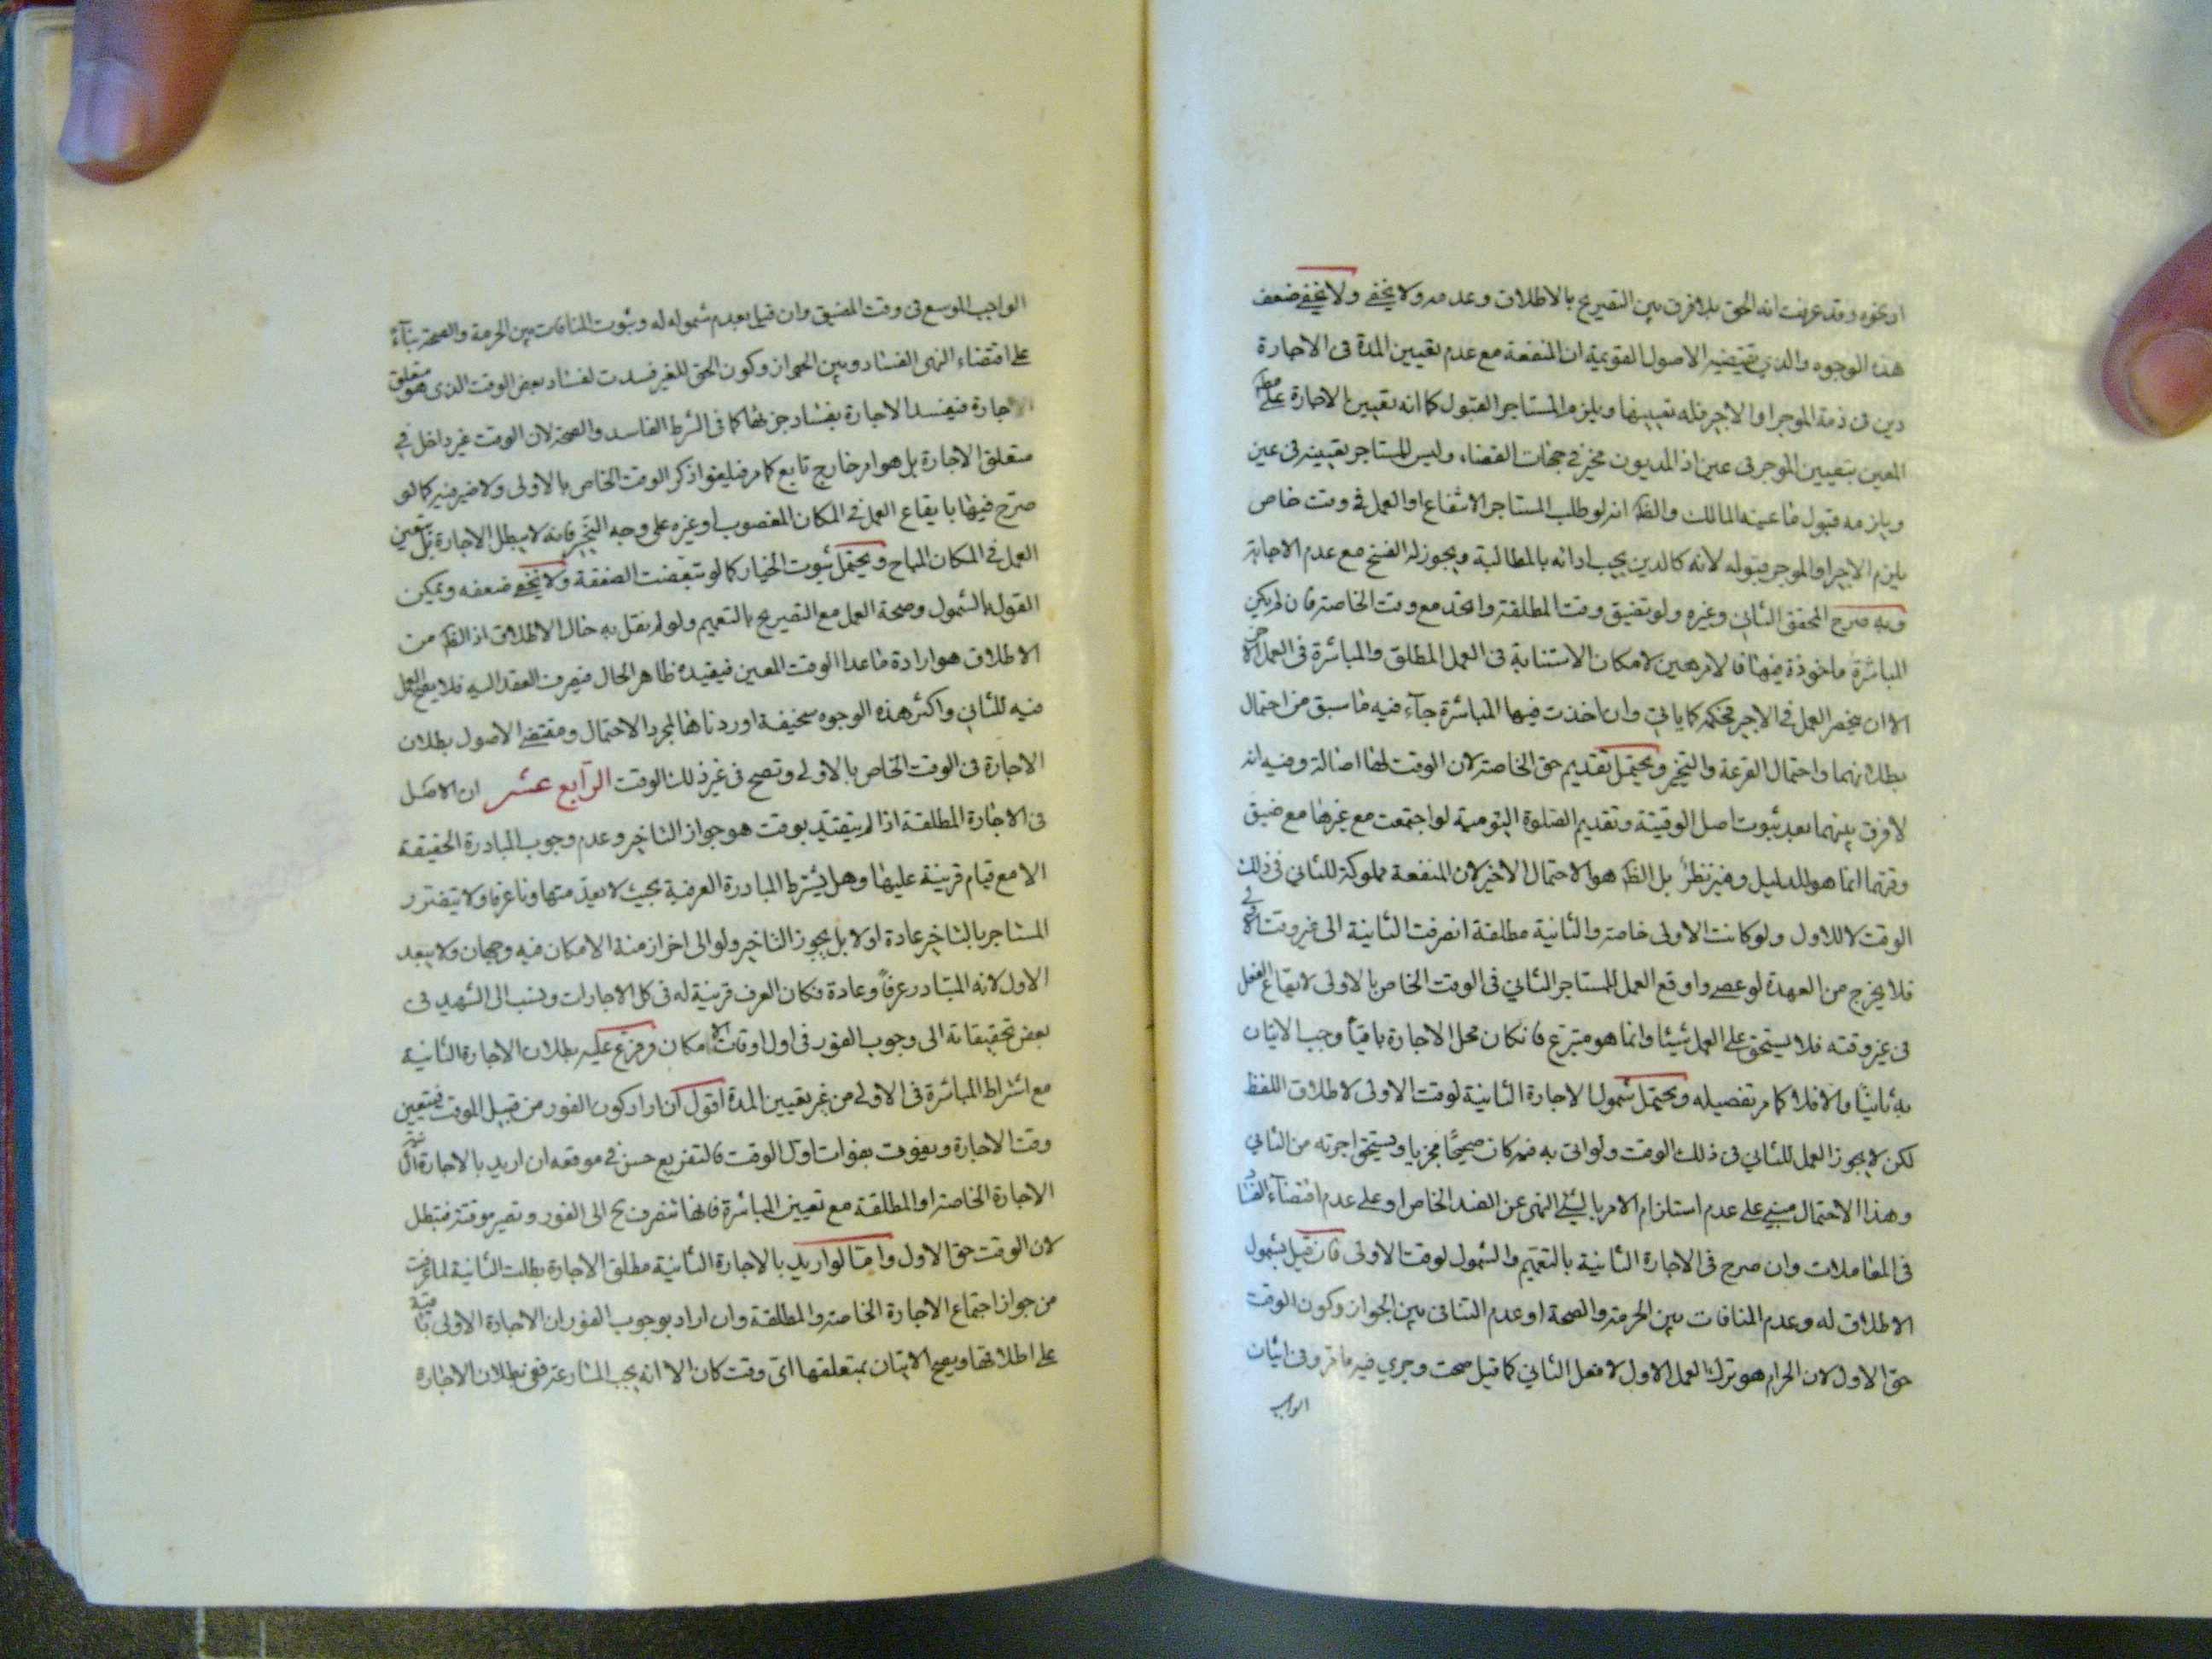 او نحوه وقد عرفت انه الحق بلا فرق بين التصريح بالاطلاق وعدمه ولا يخفى ولا يخفى ضعف
هذه الوجوه والذي يقتضيه الاصول القويمة ان المنفعة مع عدم تعيين المدة فى الاجارة
دين فى ذمة الموجر او الاجير فله تعيينها ويلزم المستاجر القبول كما انه تعيين الاجارة على
المعين بتعيين الموجر فى عين اذ المديون مخير في جهات القضاء وليس للمستاجر تعيينه فى عين
ويلزمه قبول ما عينه المالك والظ انه لو طلب المستاجر الانتفاع او العمل في وقت خاص
يلزم الاجير او الموجر قبوله لانه كالدين يجب ادائه بالمطالبة ويجوز له الفسخ مع عدم الاجابة
وبه صرح المحقق الثاني وغيره ولو تضيق وقت المطلقة واتحد مع وقت الخاصة فان لم يكن
المباشرة ماخوذة فيهما فالامر هين لامكان الاستنابة فى العمل المطلق والمباشرة فى العمل
الا ان ينحصر العمل في الاجير فحكمه كما ياتي وان اخذت فيها المباشرة جآء فيه ما سبق من احتمال
بطلانهما واحتمال القرعة والتخيير ويحتمل تقديم حق الخاصة لان الوقت لها اصالة وفيه انه
لا فرق بينهما بعد ثبوت اصل الوقتية وتقديم الصلوة اليومية لو اجتمعت مع غيرها مع ضيق
وقتهما انما هو للدليل وفيه نظر بل الظ هو الاحتمال الاخير لان المنفعة مملوكة للثاني فى ذلك
الوقت لا للاول ولو كانت الاولى خاصة والثانية مطلقة انصرفت الثانية الى غير وقت
فلا يخرج من العهدة لو عصى واوقع العمل للمستاجر الثاني فى الوقت الخاص بالاولى لايقاع الفعل
فى غير وقته فلا يستحق على العمل شيئا وانما هو متبرع فانكان محل الاجارة باقيا وجب الاتيان
به ثانيا والا فلا كما مر تفصيله ويحتمل شمول الاجارة الثانية لوقت الاولى لاطلاق اللفظ
لكن لا يجوز العمل للثاني فى ذلك الوقت ولو اتى به فيه كان صحيحا مجزيا ويستحق اجرته من الثاني
وهذا الاحتمال مبني على عدم استلزام الامر بالشئ النهى عن الضد الخاص او على عدم اقتضآء
فى المعاملات وان صرح فى الاجارة الثانية بالتعميم والشمول لوقت الاولى فان قيل بشمول
الاطلاق له وعدم المنافات بين الحرمة والصحة او عدم التنافى بين الجواز وكون الوقت
حق الاول لان الحرام هو ترك العمل الاول لا فعل الثاني كما قيل صحت وجرى فيه ما مر وفى اتيان
الواجب
الواجب الموسع فى وقت المضيق وان قيل بعدم شموله له وثبوت المنافات بين الحرمة والصحة بنآء
على اقتضاء النهى الفساد وبين الجواز وكون الحق للغير فسدت لفساد بعض الوقت الذى هو متعلق
الاجارة فيفسد الاجارة بفساد جزئها كما فى الشرط الفاسد والصحة لان الوقت غير داخل في
متعلق الاجارة بل هو امر خارج تابع كما مر فليغو اذكر الوقت الخاص بالاولى ولا ضير فيه كما لو
صرح فيها بايقاع العمل في المكان المغصوب او غيره على وجه التخيير فانه لا يبطل الاجارة بل يتعين
العمل في المكان المباح ويحتمل ثبوت الخيار كما لو تبعضت الصفقة ولا يخفى ضعفه ويمكن
القول بالشمول وصحة العمل مع التصريح بالتعميم ولو لم نقل به حال الاطلاق اذ الظ من
الاطلاق هو ارادة ما عدا الوقت المعين فيقيده ظاهر الحال فيصرف العقد اليه فلا يصح العمل
فيه للثاني واكثر هذه الوجوه سخيفة اوردناها لمجرد الاحتمال ومقتضى الاصول بطلان
الاجارة فى الوقت الخاص بالاولى وتصح فى غير ذلك الوقت الرابع عشر ان الاصل
فى الاجارة المطلقة اذا لم يتقيد بوقت هو جواز التاخير وعدم وجوب المبادرة الحقيقة
الا مع قيام قرينة عليها وهل يشترط المبادرة العرفية بحيث لا يعد متهاونا عرفا ولا يتضرر
المستاجر بالتاخير عادة اولا بل يجوز التاخير ولو الى اخر ازمنة الامكان فيه وجهان ولا يبعد
الاول لانه المتبادر عرفا وعادة فكان العرف قرينة له فى كل الاجارات ونسب الى الشهيد فى
بعض تحقيقاته الى وجوب الفور فى اول اوقات الامكان وفرع عليه بطلان الاجارة الثانية
مع اشتراط المباشرة فى الاولى من غير تعيين المدة اقول ان اراد كون الفور من قبيل الموقت فيتعين
وقت الاجارة ويفوت بفوات اول الوقت فالتفريع حسن في موقعه ان اريد بالاجارة الثانية
الاجارة الخاصة او المطلقة مع تعيين المباشرة فانها تنصرف ح الى الفور وتصير موقتة فتبطل
لان الوقت حق الاول واما لو اريد بالاجارة الثانية مطلق الاجارة بطلت الثانية لما عرفت
من جواز اجتماع الاجارة الخاصة والمطلقة وان اراد بوجوب الفور ان الاجارة الاولى باقية
على اطلاقها ويصح الاتيان بمتعلقها اى وقت كان الا انه يجب المسارعة ففى بطلان الاجارة